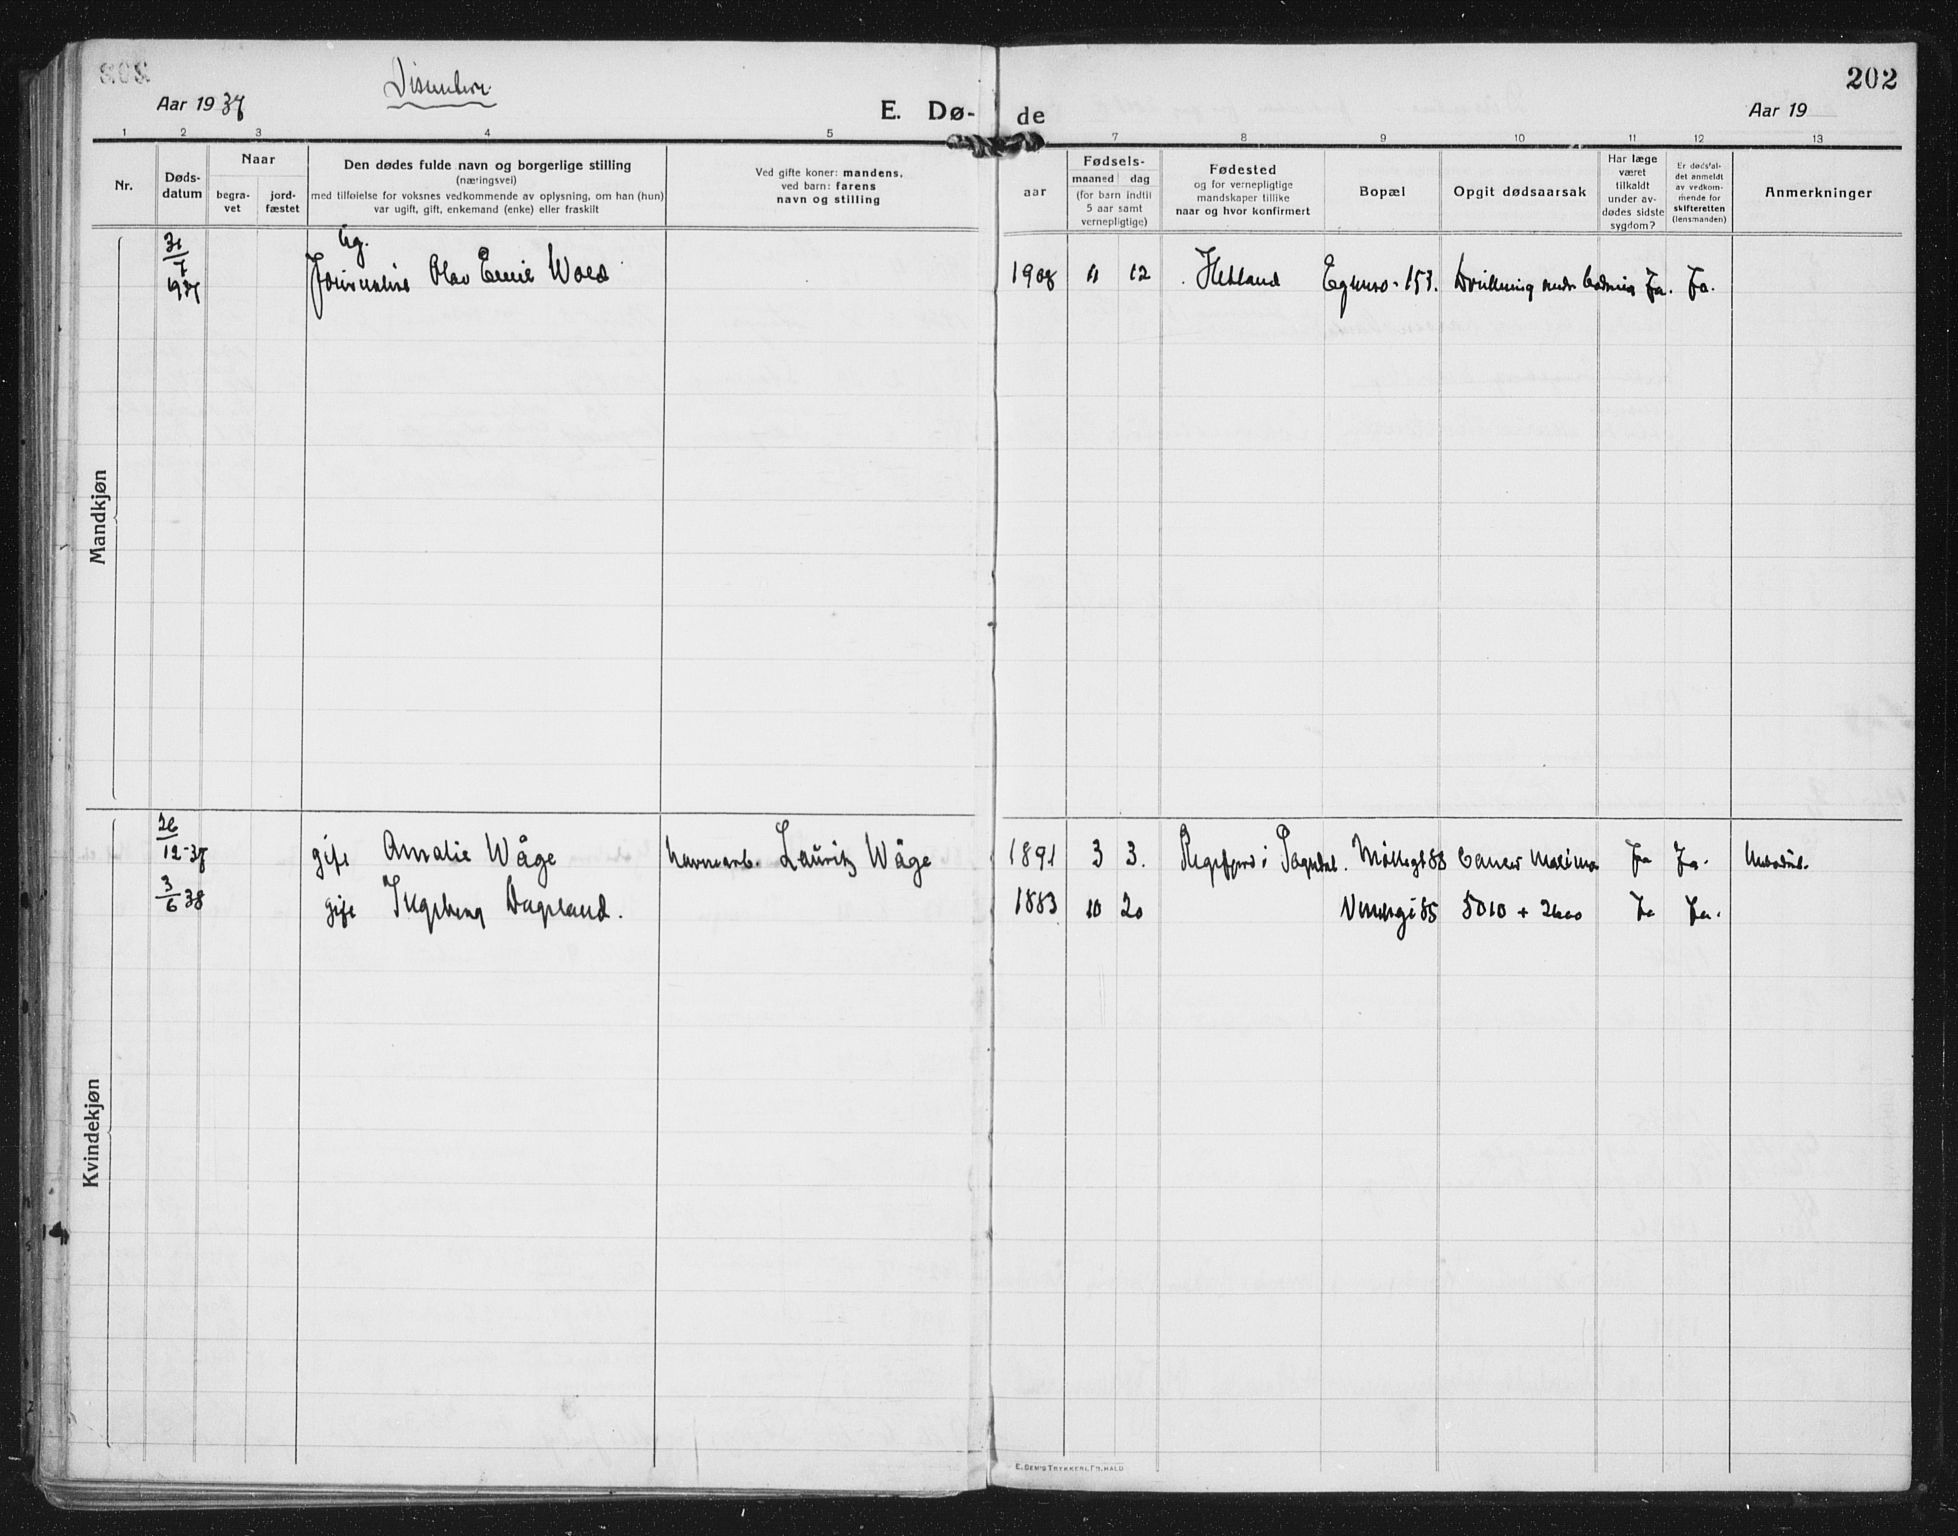 202
Aar 1937
Dissentere
E. Dø-
de
Aar 19
1 2 3 4 5 7 8 9 10 11 12 13
Nr.
Døds-
datum
Naar
begra-
vet
jord-
fæstet
Den dødes fulde navn og borgerlige stilling
(næringsvei)
med tilføielse for voksnes vedkommende av oplysning, om han (hun)
var ugift, gift, enkemand (enke) eller fraskilt
Ved gifte koner: mandens,
ved barn: farens
navn og stilling
aar
Fødsels-
maaned dag
(for barn indtil
5 aar samt
vernepligtige)
Fødested
og for vernepligtige
mandskaper tillike
naar og hvor konfirmert
Bopæl
Opgit dødsaarsak
Har læge
været
tilkaldt
under av-
dødes sidste
sygdom?
Er dødsfal-
det anmeldt
av vedkom-
mende for
skifteretten
(lensmanden)
Anmerkninger
Mandkjøn
ug.
Olav Emil 1908 11 12 Hetland 153. Ja. Ja.
Kvindekjøn
26/12-37 gift Amalie Wåge havnearb. Lauritz Wåge 1891 3 3. i Møllegt 88 Ja Ja.
3/6 38 gift Ingeborg Dagsland. 1883 10 20 85 Ja Ja.
E. SEM'S TRYKKERI, FR.HALD